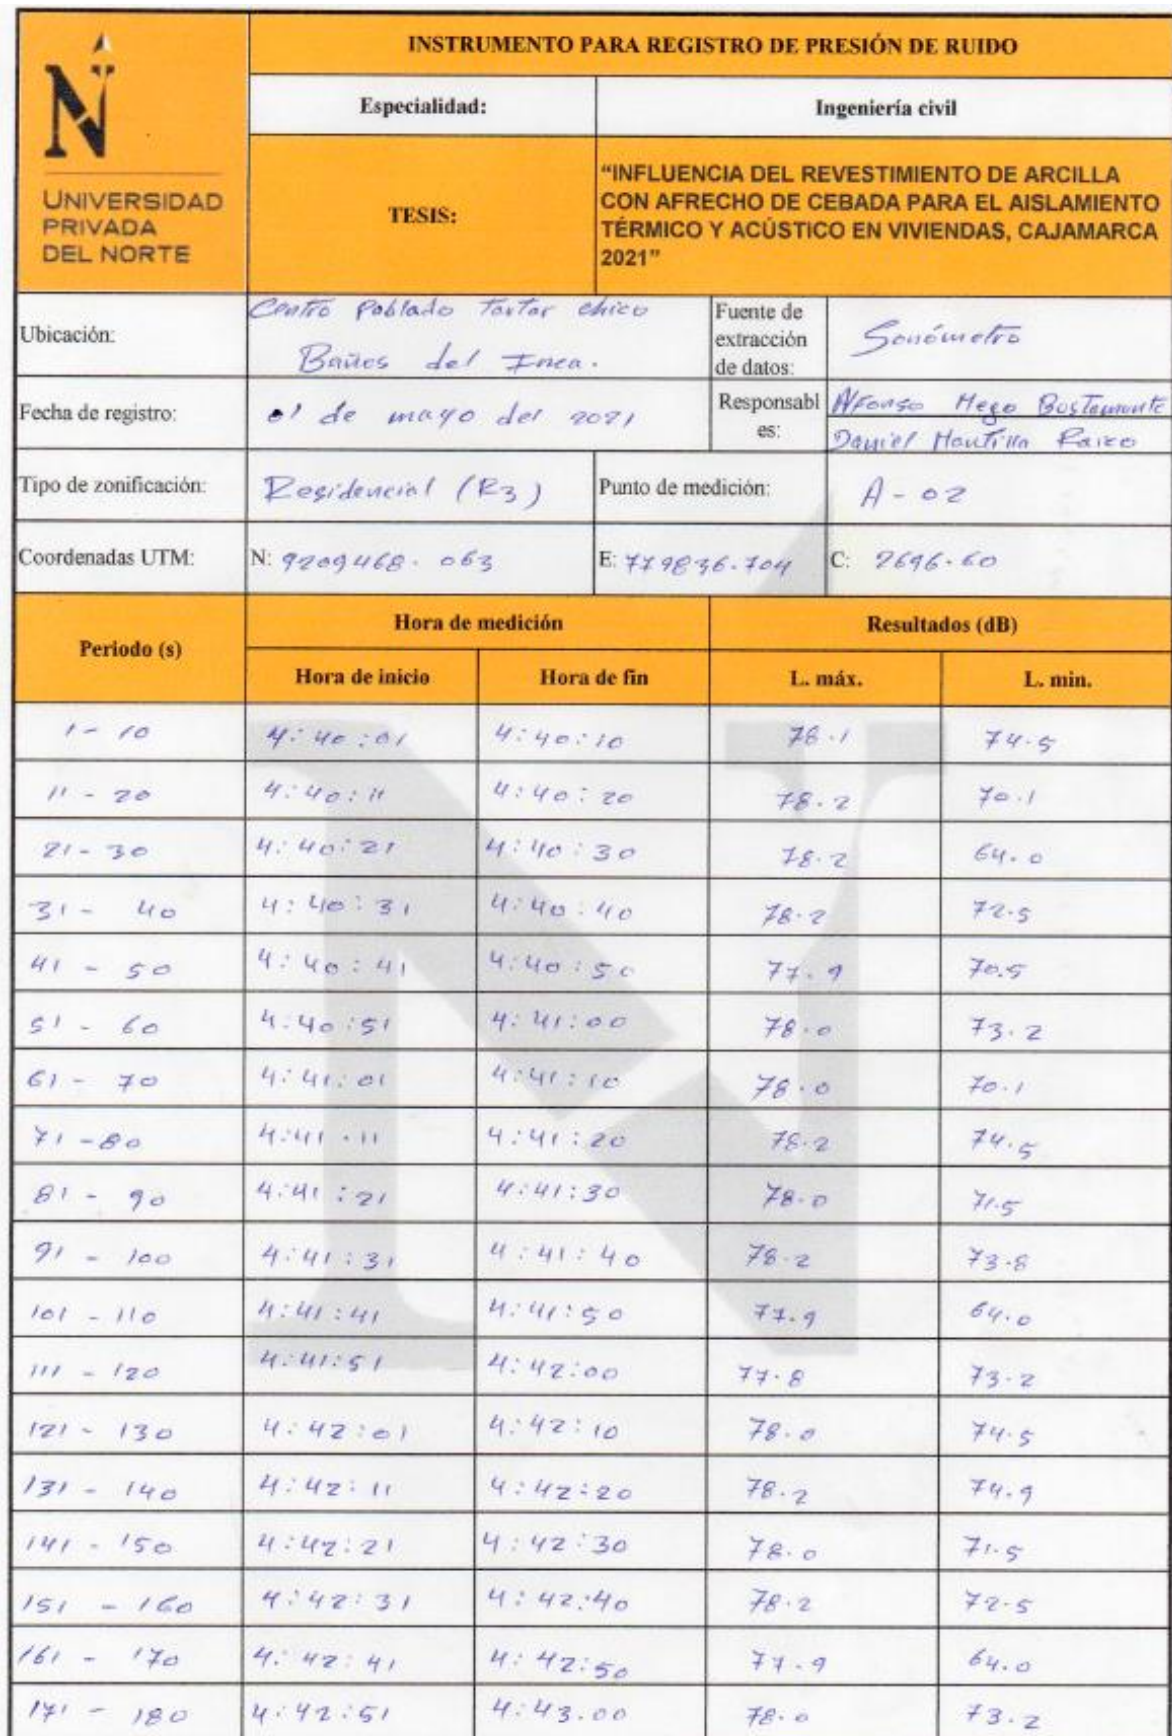 N
UNIVERSIDAD
PRIVADA
DEL NORTE
INSTRUMENTO PARA REGISTRO DE PRESIÓN DE RUIDO
Especialidad: Ingeniería civil
TESIS:
“INFLUENCIA DEL REVESTIMIENTO DE ARCILLA
CON AFRECHO DE CEBADA PARA EL AISLAMIENTO
TÉRMICO Y ACÚSTICO EN VIVIENDAS, CAJAMARCA
2021”
Ubicación:
Centro Poblado Tartar chico
Baños del Inca.
Fuente de
extracción
de datos:
Sonómetro
Fecha de registro: 01 de mayo del 2021
Responsabl
es:
Alfonso Mego Bustamante
Daniel Mantilla Raico
Tipo de zonificación: Residencial (R3) Punto de medición: A - 02
Coordenadas UTM: N: 9209468.063 E: 779836.704 C: 2696.60
Periodo (s) Hora de medición Resultados (dB)
Hora de inicio Hora de fin L. máx. L. min.
1 - 10 4:40:01 4:40:10 78.1 74.5
11 - 20 4:40:11 4:40:20 78.2 70.1
21 - 30 4:40:21 4:40:30 78.2 64.0
31 - 40 4:40:31 4:40:40 78.2 72.5
41 - 50 4:40:41 4:40:50 77.9 70.5
51 - 60 4:40:51 4:41:00 78.0 73.2
61 - 70 4:41:01 4:41:10 78.0 70.1
71 - 80 4:41:11 4:41:20 78.2 74.5
81 - 90 4:41:21 4:41:30 78.0 71.5
91 - 100 4:41:31 4:41:40 78.2 73.8
101 - 110 4:41:41 4:41:50 77.9 64.0
111 - 120 4:41:51 4:42:00 77.8 73.2
121 - 130 4:42:01 4:42:10 78.0 74.5
131 - 140 4:42:11 4:42:20 78.2 74.9
141 - 150 4:42:21 4:42:30 78.0 71.5
151 - 160 4:42:31 4:42:40 78.2 72.5
161 - 170 4:42:41 4:42:50 77.9 64.0
171 - 180 4:42:51 4:43.00 78.0 73.2